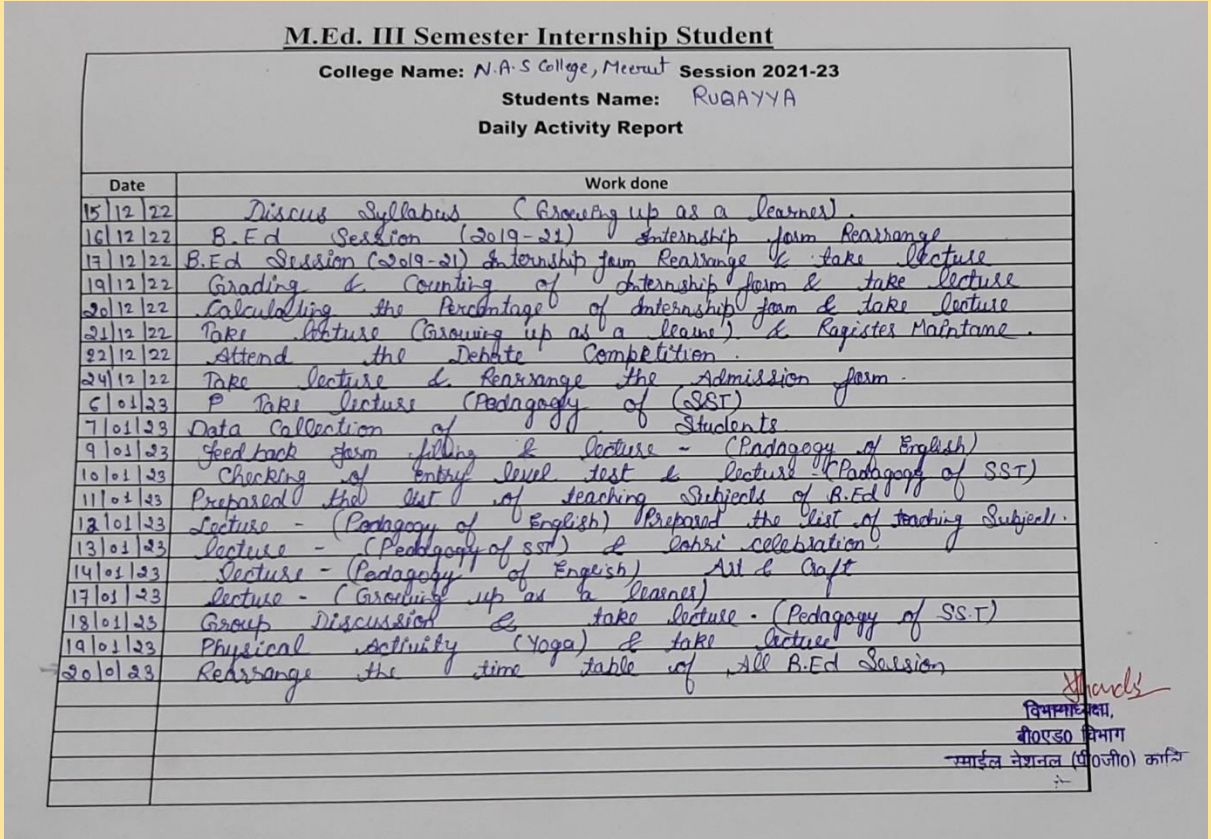 M.Ed. III Semester Internship Student
College Name: N.A.S College, Meerut Session 2021-23
Students Name: RUQAYYA
Daily Activity Report
Date Work done
15/12/22 Discus Syllabus (Growing up as a learner).
16/12/22 B.Ed Session (2019-21) Internship form Rearrange
17/12/22 B.Ed Session (2019-21) Internship form Rearrange & take lecture
19/12/22 Grading & Counting of Internship form & take lecture
20/12/22 Calculating the Percentage of Internship form & take lecture
21/12/22 Take lecture (Growing up as a learne) & Ragister Maintane.
22/12/22 Attend the Debate Competition.
24/12/22 Take lecture & Rearrange the Admission form.
6/01/23 P Take lecture (Pedagogy of (SST)
7/01/23 Data Collection of Students
9/01/23 feed back form filling & lecture - (Padagogy of English)
10/01/23 Checking of entry level test & lecture - (Padagogy of SST)
11/01/23 Prepared the list of teaching Subjects of B.Ed
12/01/23 Lecture - (Pedagogy of English) Prepared the list of teaching Subjects.
13/01/23 lecture - (Pedagogy of SST) & lohri celebration.
14/01/23 lecture - (Pedagogy of English) Art & Craft
17/01/23 lecture - (Growing up as a learner)
18/01/23 Group Discussion & take lecture - (Pedagogy of SS.T)
19/01/23 Physical Activity (Yoga) & take lecture
20/0/23 Rearrange the time table of All B.Ed Session
विभागाध्यक्षा,
बी०एड० विभाग
स्माईल नेशनल (पी०जी०) कालि